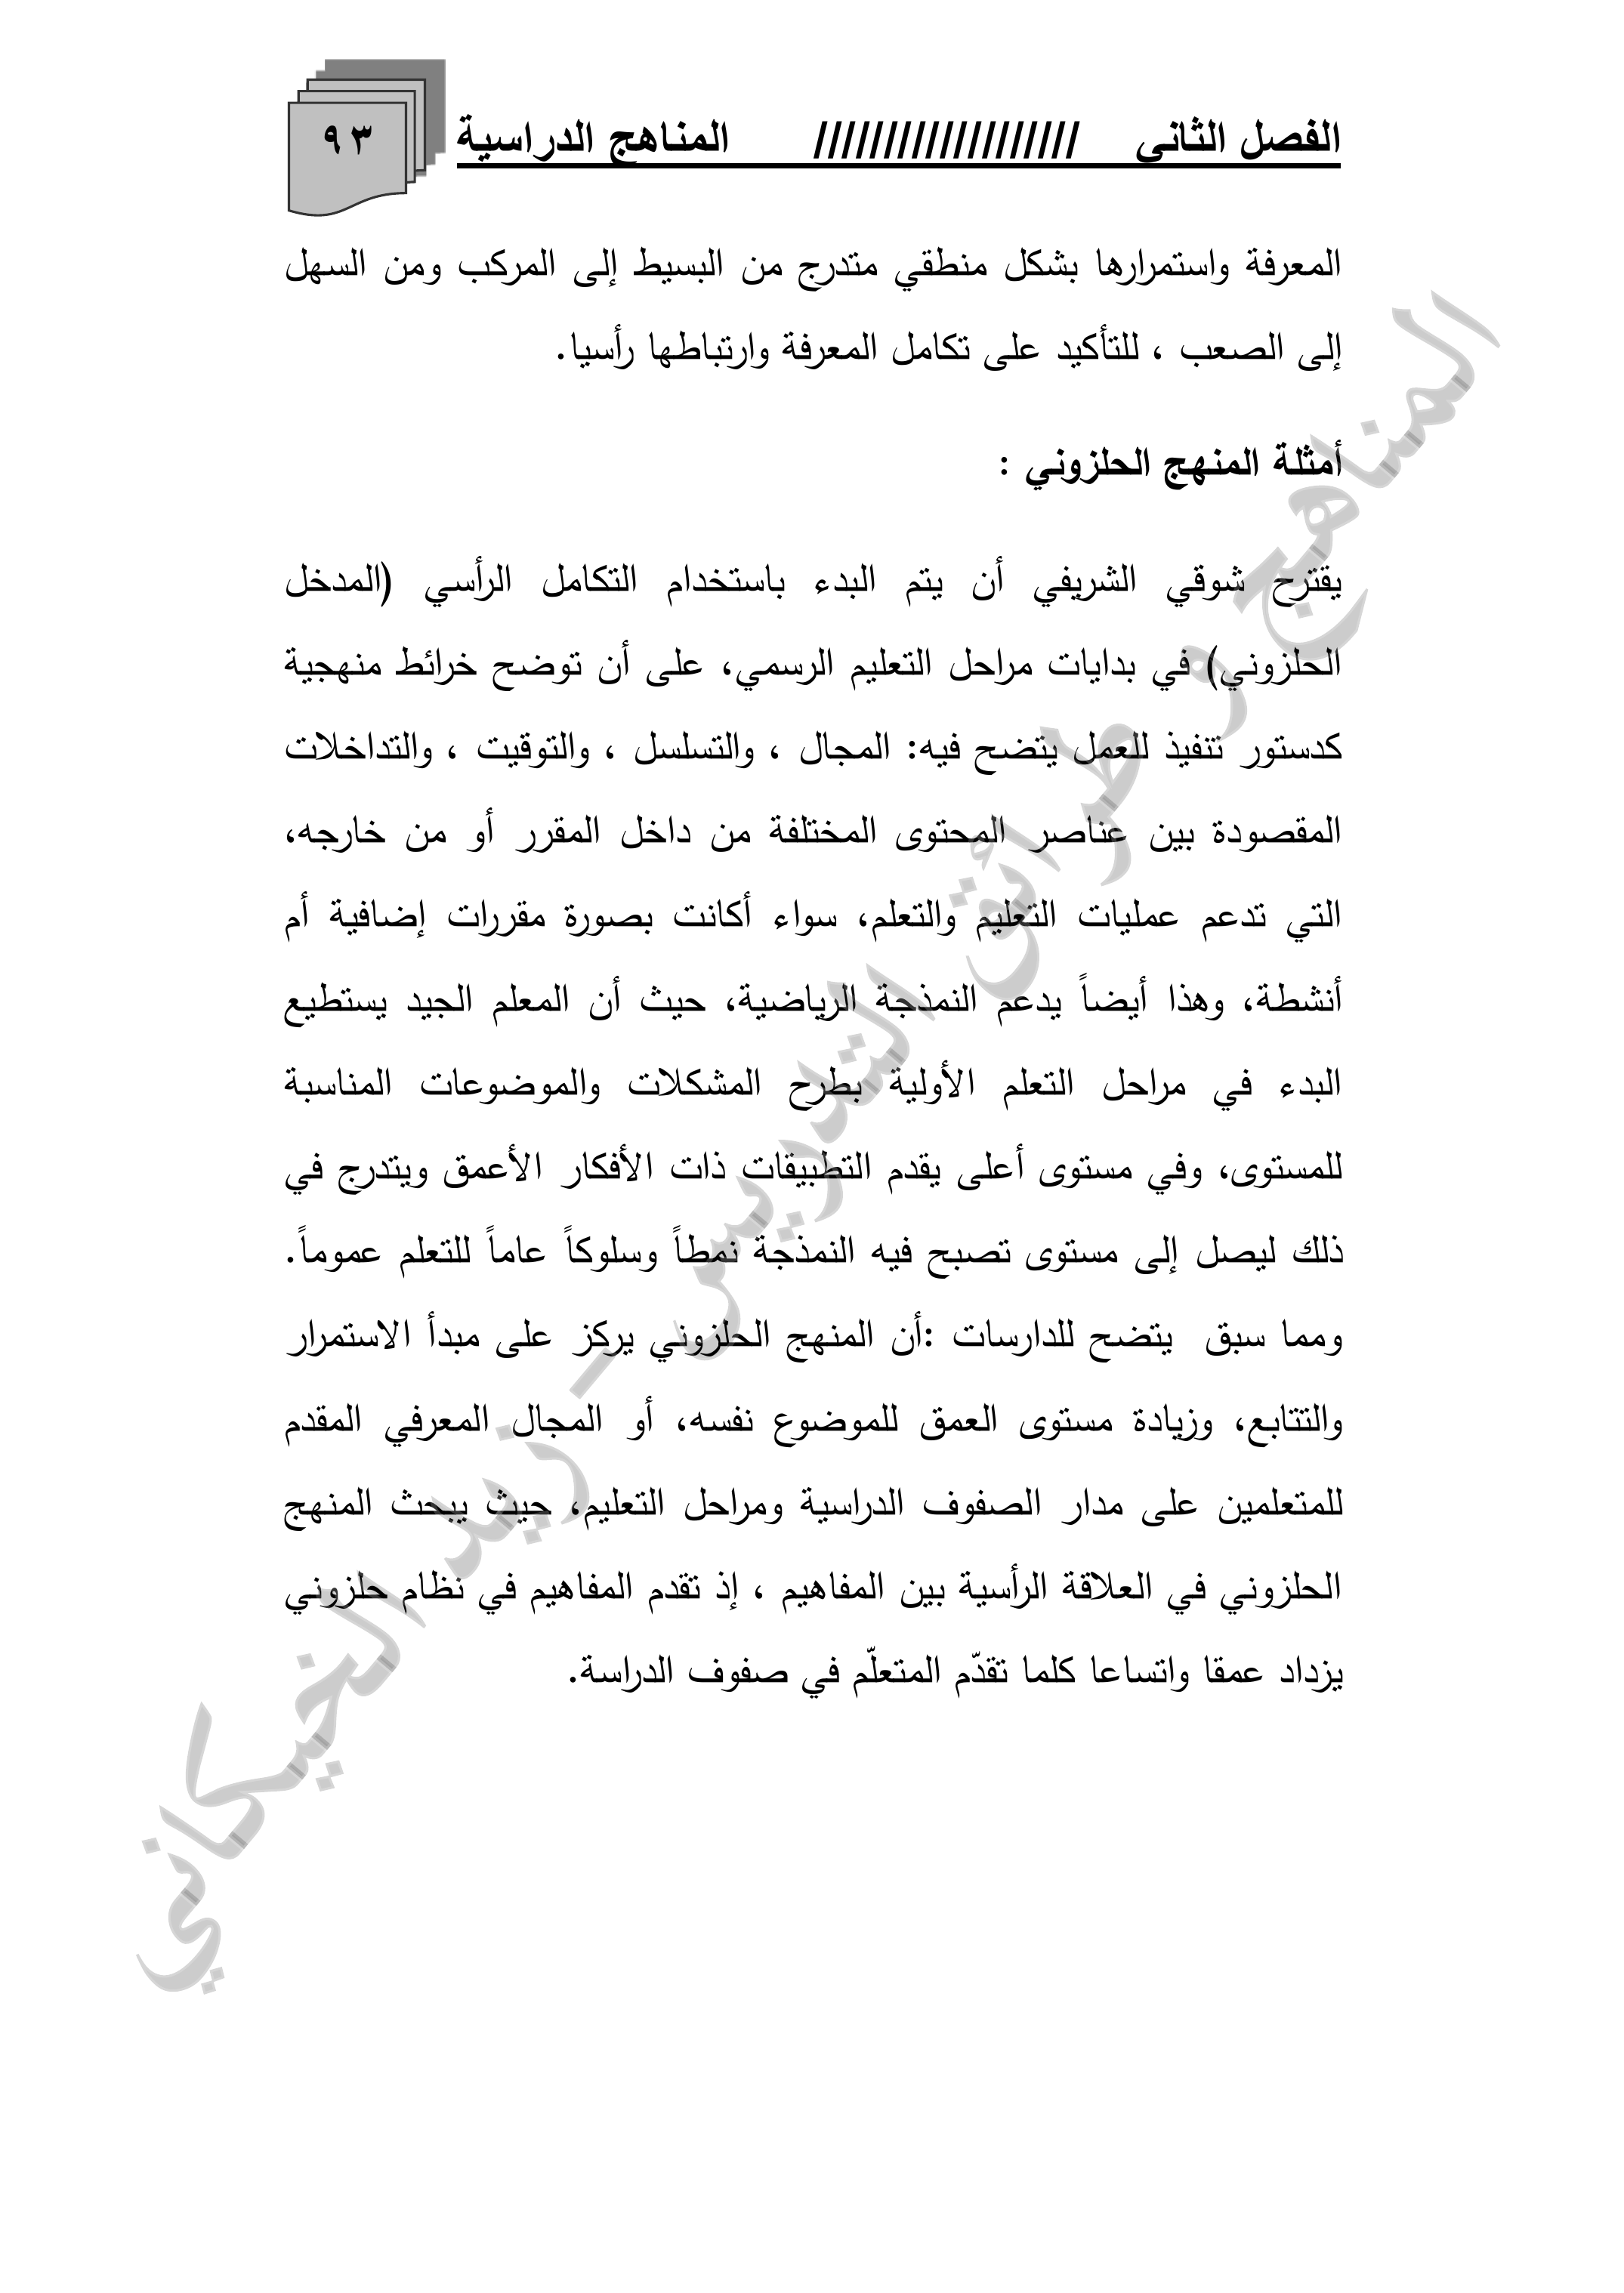 الفصل الثاني /////////////////// المناهج الدراسية
٩٣
المعرفة واستمرارها بشكل منطقي متدرج من البسيط إلى المركب ومن السهل
إلى الصعب ، للتأكيد على تكامل المعرفة وارتباطها رأسيا.
أمثلة المنهج الحلزوني :
يقترح شوقي الشريفي أن يتم البدء باستخدام التكامل الرأسي (المدخل
الحلزوني) في بدايات مراحل التعليم الرسمي، على أن توضح خرائط منهجية
كدستور تنفيذ للعمل يتضح فيه: المجال ، والتسلسل ، والتوقيت ، والتداخلات
المقصودة بين عناصر المحتوى المختلفة من داخل المقرر أو من خارجه،
التي تدعم عمليات التعليم والتعلم، سواء أكانت بصورة مقررات إضافية أم
أنشطة، وهذا أيضاً يدعم النمذجة الرياضية، حيث أن المعلم الجيد يستطيع
البدء في مراحل التعلم الأولية بطرح المشكلات والموضوعات المناسبة
للمستوى، وفي مستوى أعلى يقدم التطبيقات ذات الأفكار الأعمق ويتدرج في
ذلك ليصل إلى مستوى تصبح فيه النمذجة نمطاً وسلوكاً عاماً للتعلم عموماً.
ومما سبق يتضح للدارسات :أن المنهج الحلزوني يركز على مبدأ الاستمرار
والتتابع، وزيادة مستوى العمق للموضوع نفسه، أو المجال المعرفي المقدم
للمتعلمين على مدار الصفوف الدراسية ومراحل التعليم، حيث يبحث المنهج
الحلزوني في العلاقة الرأسية بين المفاهيم ، إذ تقدم المفاهيم في نظام حلزوني
يزداد عمقا واتساعا كلما تقدّم المتعلّم في صفوف الدراسة.
المناهج و طرائق التدريس - زيد الخيكاني